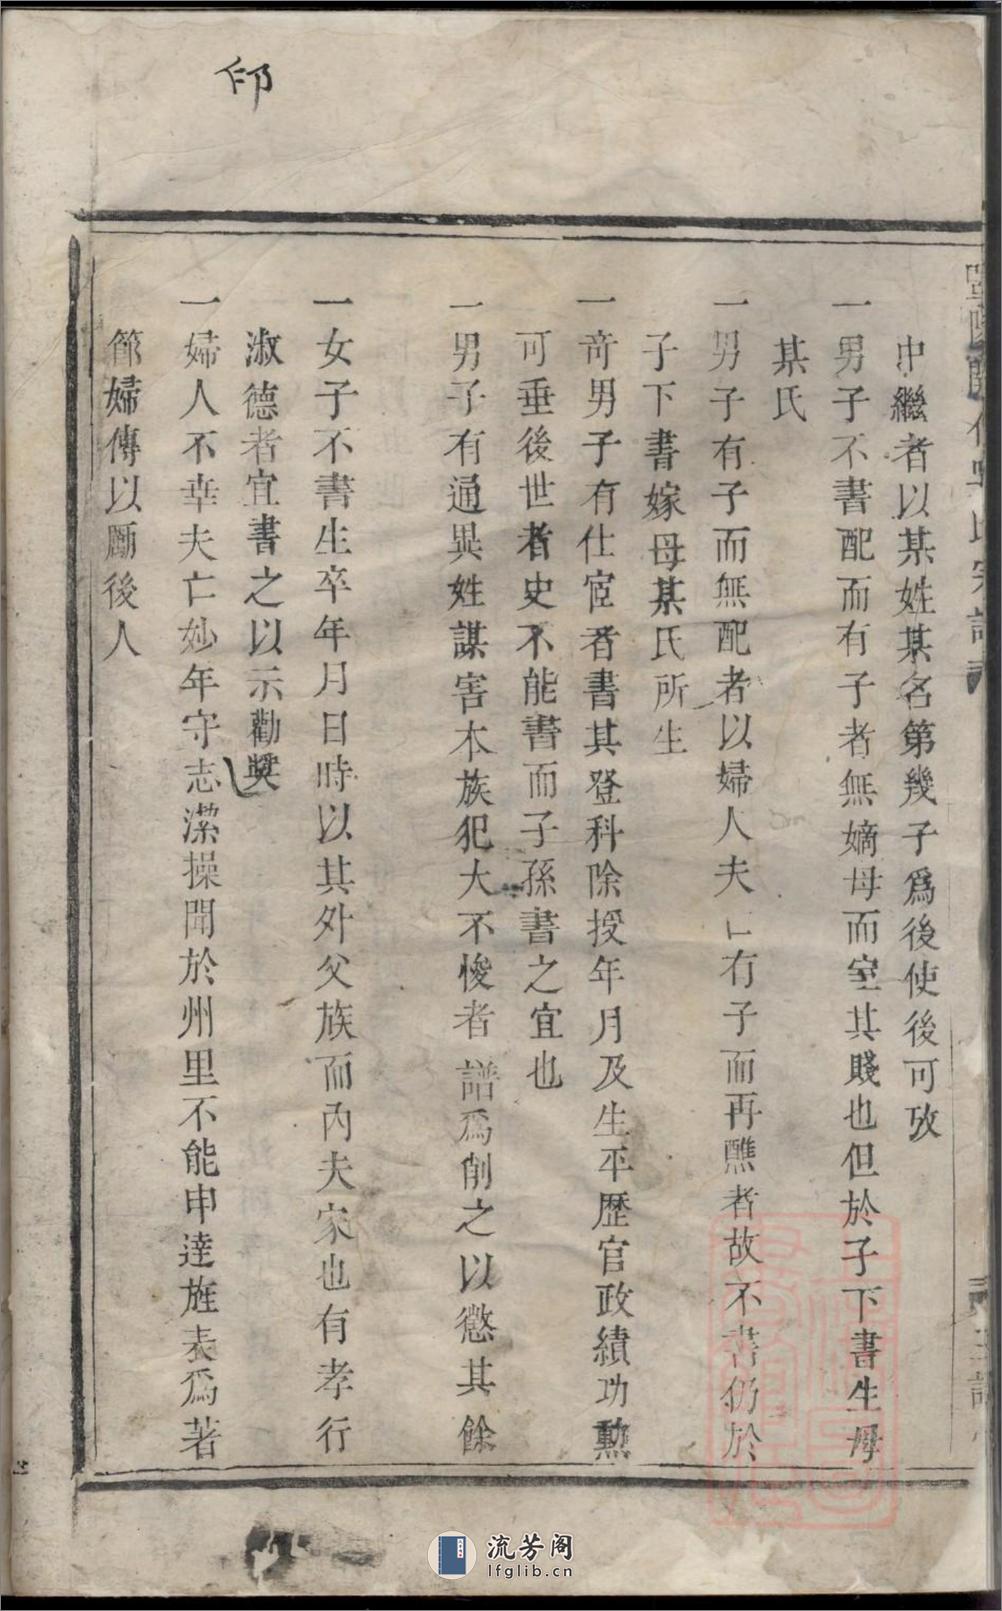 邱
中繼者以某姓某名第幾子爲後使後可攷
一男子不書配而有子者無嫡母而室其賤也但於子下書生母
某氏
一男子有子而無配者以婦人夫亡有子而再醮者故不書仍於
子下書嫁母某氏所生
一奇男子有仕宦者書其登科除授年月及生平歷官政績功勲
可垂後世者史不能書而子孫書之宜也
一男子有通異姓謀害本族犯大不悛者譜爲削之以懲其餘
一女子不書生卒年月日時以其外父族而內夫家也有孝行
淑德者宜書之以示勸奬
一婦人不幸夫亡妙年守志潔操聞於州里不能申達旌表爲著
節婦傳以勵後人
流芳阁
lfglib.cn